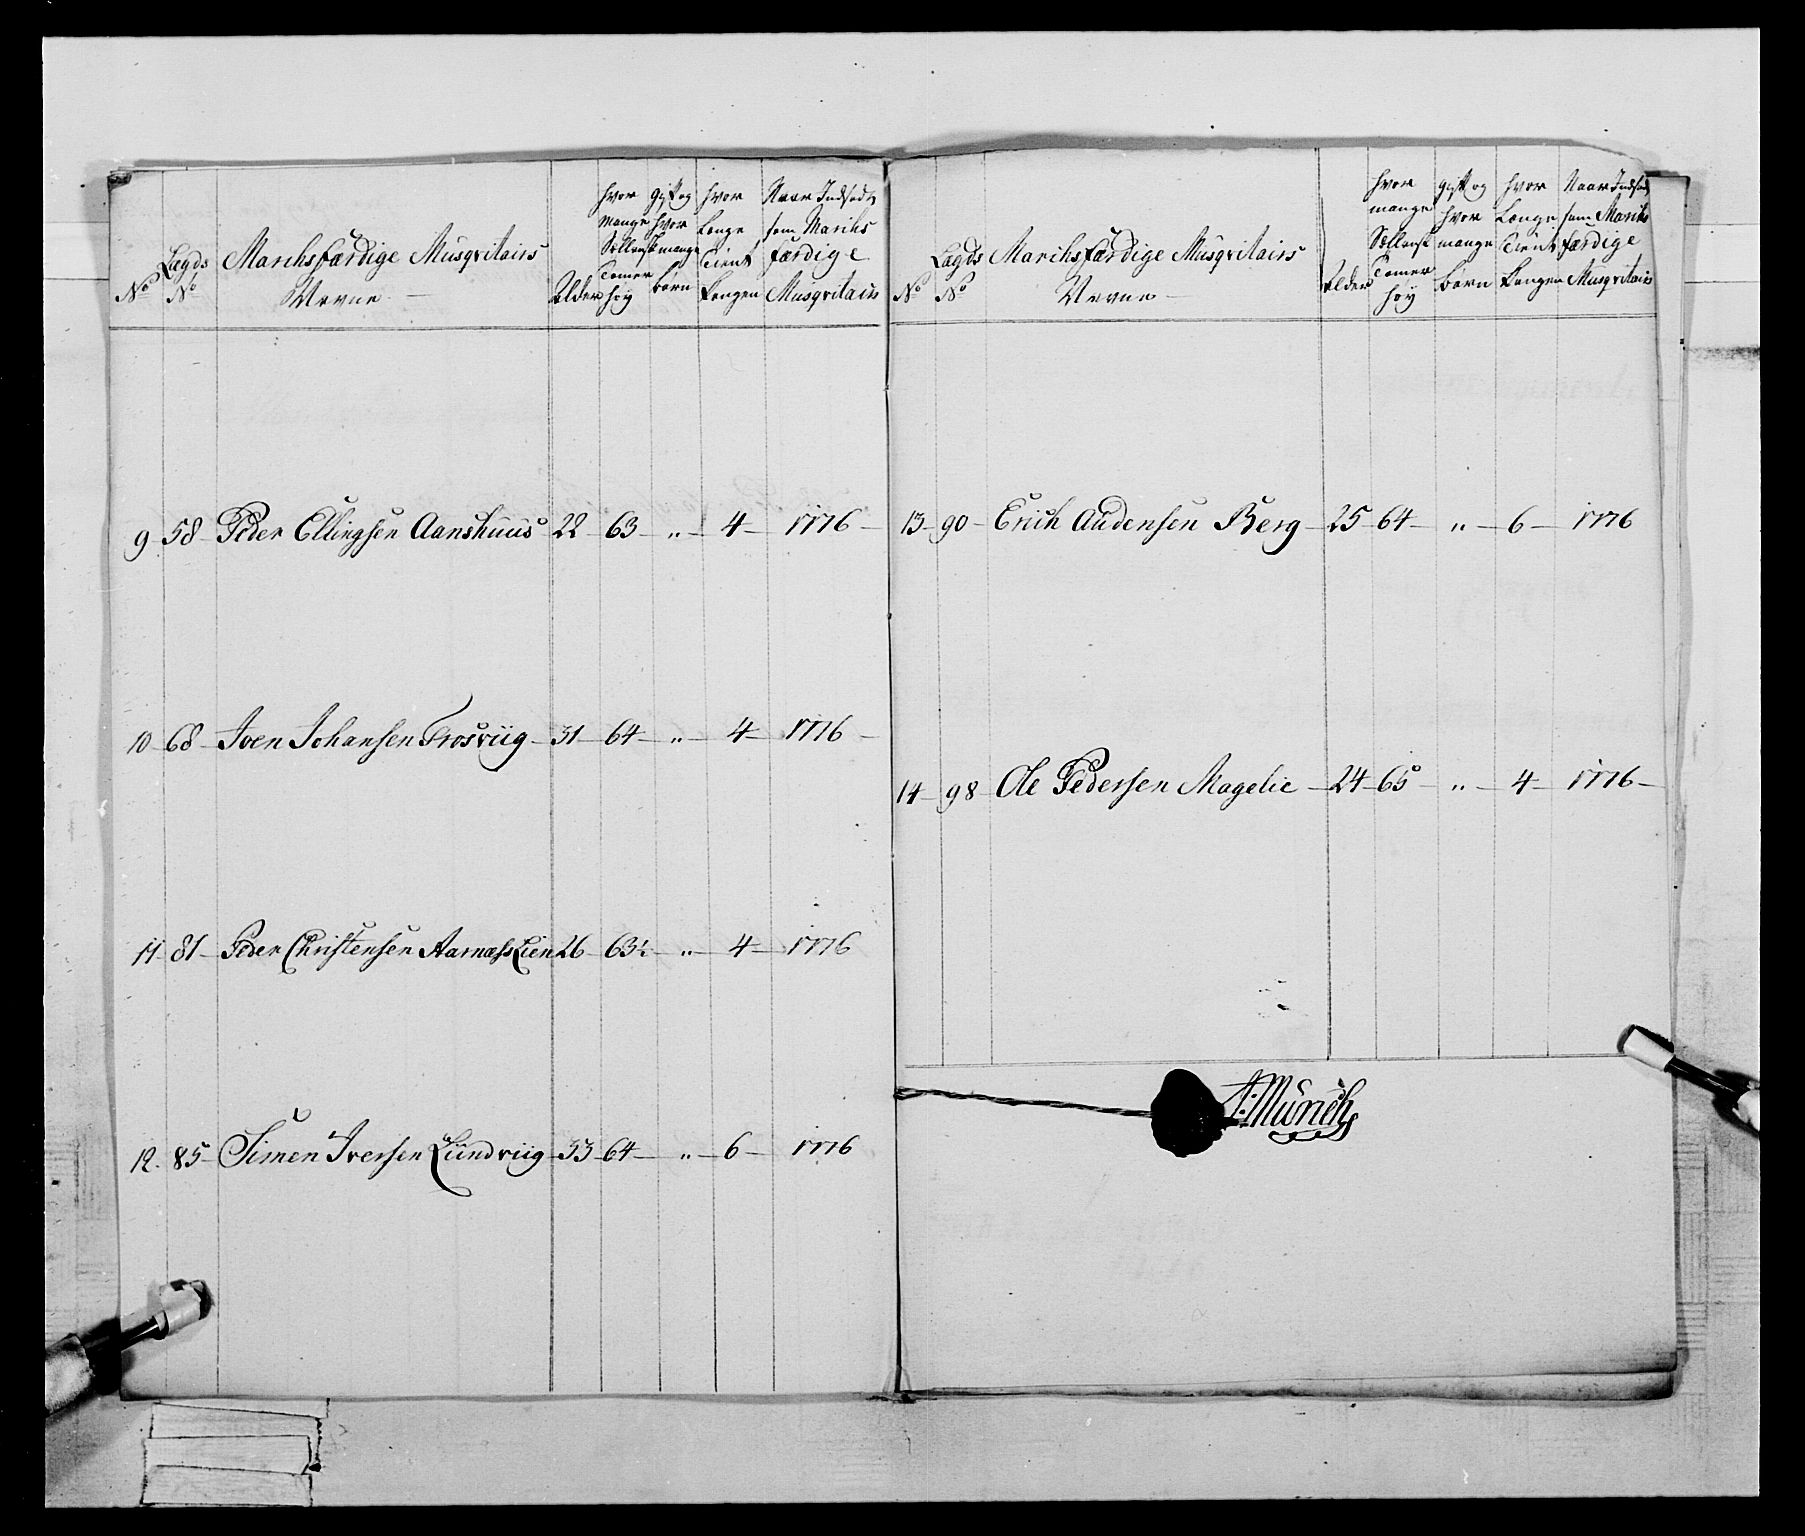 No
Lægds No
Marchsfærdige Musqvitairs
Nevne
Alder
hvor mange Sællansk Tomer höy
gift og hvor mange börn
hvor Længe Tient Kongen
Naar Indsadt som Marchs færdige Musqvitair
9 58 Peder Ellingsen Aanshuus 22 63 " 4 1776
10 68 Iven Johansen Frosviig 31 64 " 4 1776
11 81 Peder Christensen AarnæssLien 26 63½ " 4 1776
12 85 Simen Iversen Lundviig 33 64 " 6 1776
No
Lægds No
Marchsfærdige Musqvitairs
Nevne
Alder
hvor mange Sællansk Tomer höy
gift og hvor mange börn
hvor Længe Tient Kongen
Naar Indsadt som Marchs færdige Musqvitair
13 90 Erich Audensen Berg 25 64 " 6 1776
14 98 Ole Pedersen Magelie 24 65 " 4 1776
A: Münch